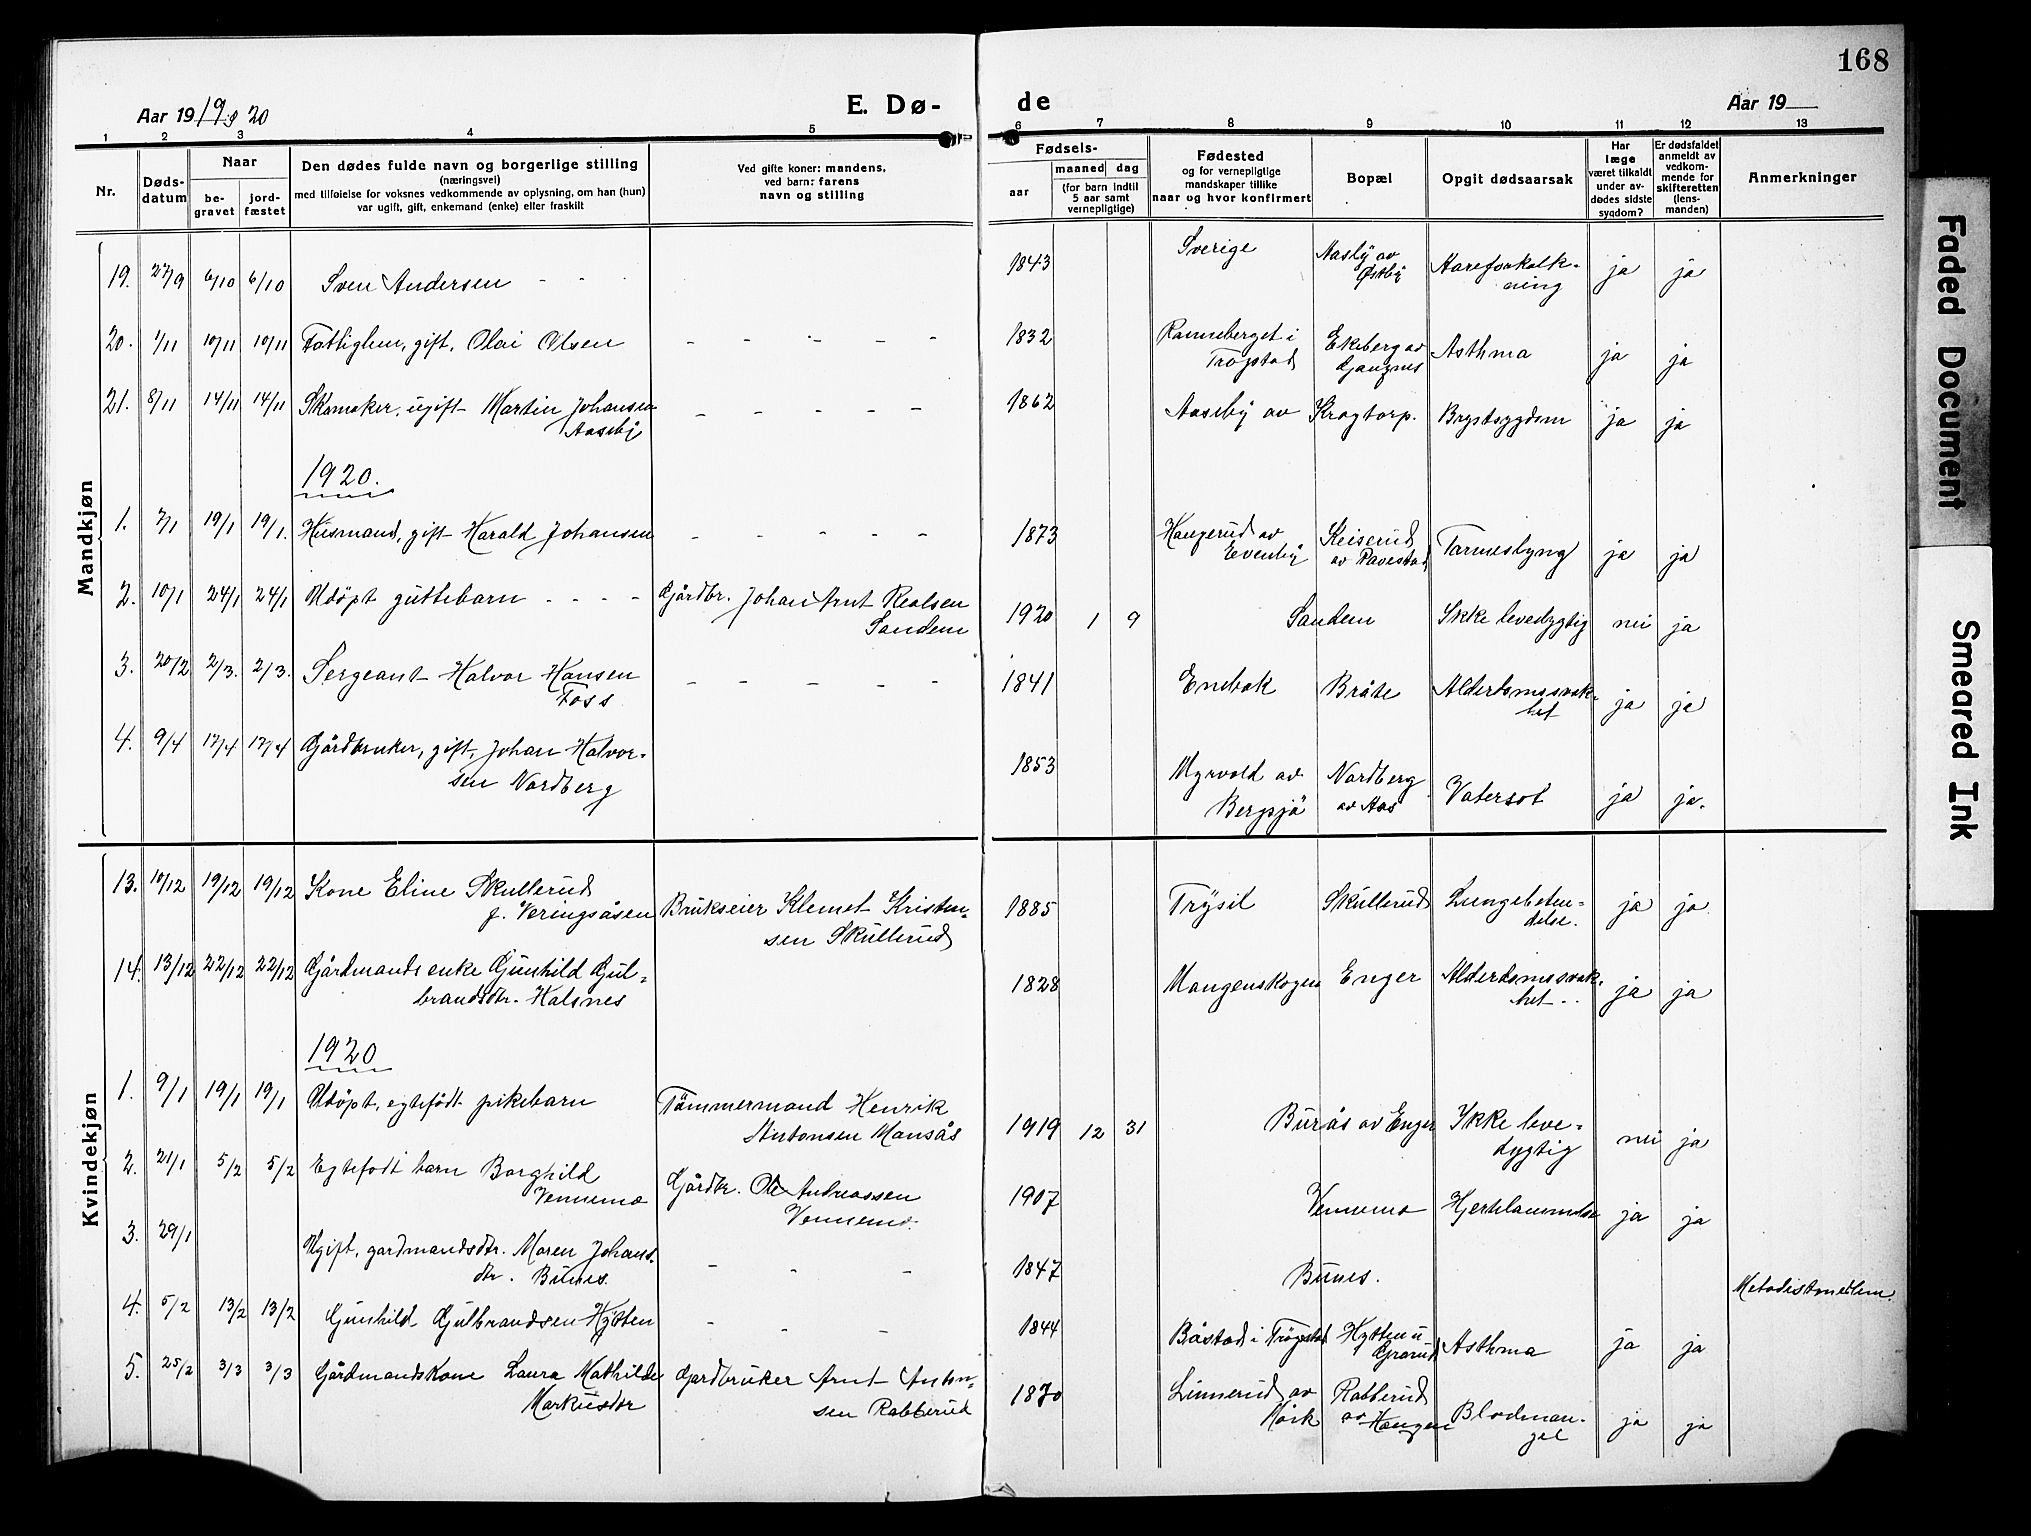 168
Aar 1919 og 20
E. Dø-
de
Aar 19
1 2 3 4 5 6 7 8 9 10 11 12 13
Nr.
Døds-
datum
Naar
be-
gravet
jord-
fæstet
Den dødes fulde navn og borgerlige stilling
(næringsvei)
med tilføielse for voksnes vedkommende av oplysning, om han (hun)
var ugift, gift, enkemand (enke) eller fraskilt
Ved gifte koner: mandens,
ved barn: farens
navn og stilling
Fødsels-
aar
maaned
dag
(for barn indtil
5 aar samt
vernepligtige)
Fødested
og for vernepligtige
mandskaper tillike
naar og hvor konfirmert
Bopæl
Opgit dødsaarsak
Har
læge
været tilkaldt
under av-
dødes sidste
sygdom?
Er dødsfaldet
anmeldt av
vedkom-
mende for
skifteretten
(lens-
manden)
Anmerkninger
Mandkjøn
19. 27/9 6/10 6/10 Sven Andersen - - - 1843 Sverige Aasby av
Østby Aareforkalk-
ning ja ja
20. 1/11 10/11 10/11 Fattiglem, gift, Olai Olsen - - - - - 1832 Ramneberget i
Trøgstad Ekeberg av
Gangnes Asthma ja ja
21. 8/11 14/11 14/11 Skomaker, ugift Martin Johansen
Aaseby - - - - - 1862 Aaseby av Kragtorp. Brystsygdom ja ja
1920.
1. 7/1 19/1 19/1. Husmand, gift Harald Johansen - - - - - 1873 Haugerud av
Evenby Keiserud
av Ravestad Tarmeslyng ja ja
2. 10/1 24/1 24/1 Udöpt guttebarn - - - - Gårdbr. Johan Arnt Realsen
Sandem 1920 1 9 Sandem Ikke levedygtig nei ja
3. 20/2 2/3. 2/3. Sergeant Halvor Hansen
Foss - - - - - 1841 Enebak Bråte Alderdomssvak-
het ja ja
4. 9/4 17/4 17/4 Gårdbruker, gift, Johan Halvor-
sen Nordberg 1853 Myrvold av
Bergsjö Nordberg
av Aas Vatersot ja ja.
Kvindekjøn
13. 10/12 19/12 19/12 Kone Eline Skullerud
f. Veringsåsen Brukseier Klemet Kristen-
sen Skullerud 1885 Trysil Skullerud Lungebeten-
delse. ja ja
14. 13/12 22/12 22/12 Gårdmands enke Gunhild Gul-
brandsdtr. Halsnes 1828 Mangenskogen Enger Alderdomssvak-
het - - ja ja
1920
1. 9/1 19/1 19/1 Udöpt, egtefödt pikebarn Tömmermand Henrik
Antonsen Mansås 1919 12 31 Burås av Enger Ikke leve-
dygtig nei ja
2. 21/1 5/2 5/2 Egtefodt barn Borghild
Vennemo Gårdbr. Ole Andreassen
Vennemo. 1907 Vennemo Hjertelammelse ja ja
3. 29/1 Ugift, gardmandsdtr. Maren Johans-
dtr. Bunes. - - - 1847 Bunes. Metodistmedlem.
4. 5/2 13/2 13/2 Gunhild Gulbrandsen Hytten - - - 1844 Båstad i Trögstad Hytten u
Grorud Asthma ja ja
5. 25/2 3/3 3/3 Gårdmandskone Laura Mathilde
Markusdtr Gardbruker Arnt Anton-
sen Rabberud 1870 Linnerud av
Mörk Rabberud
av Haugen Blodman-
gel ja ja
Faded Document
Smeared Ink